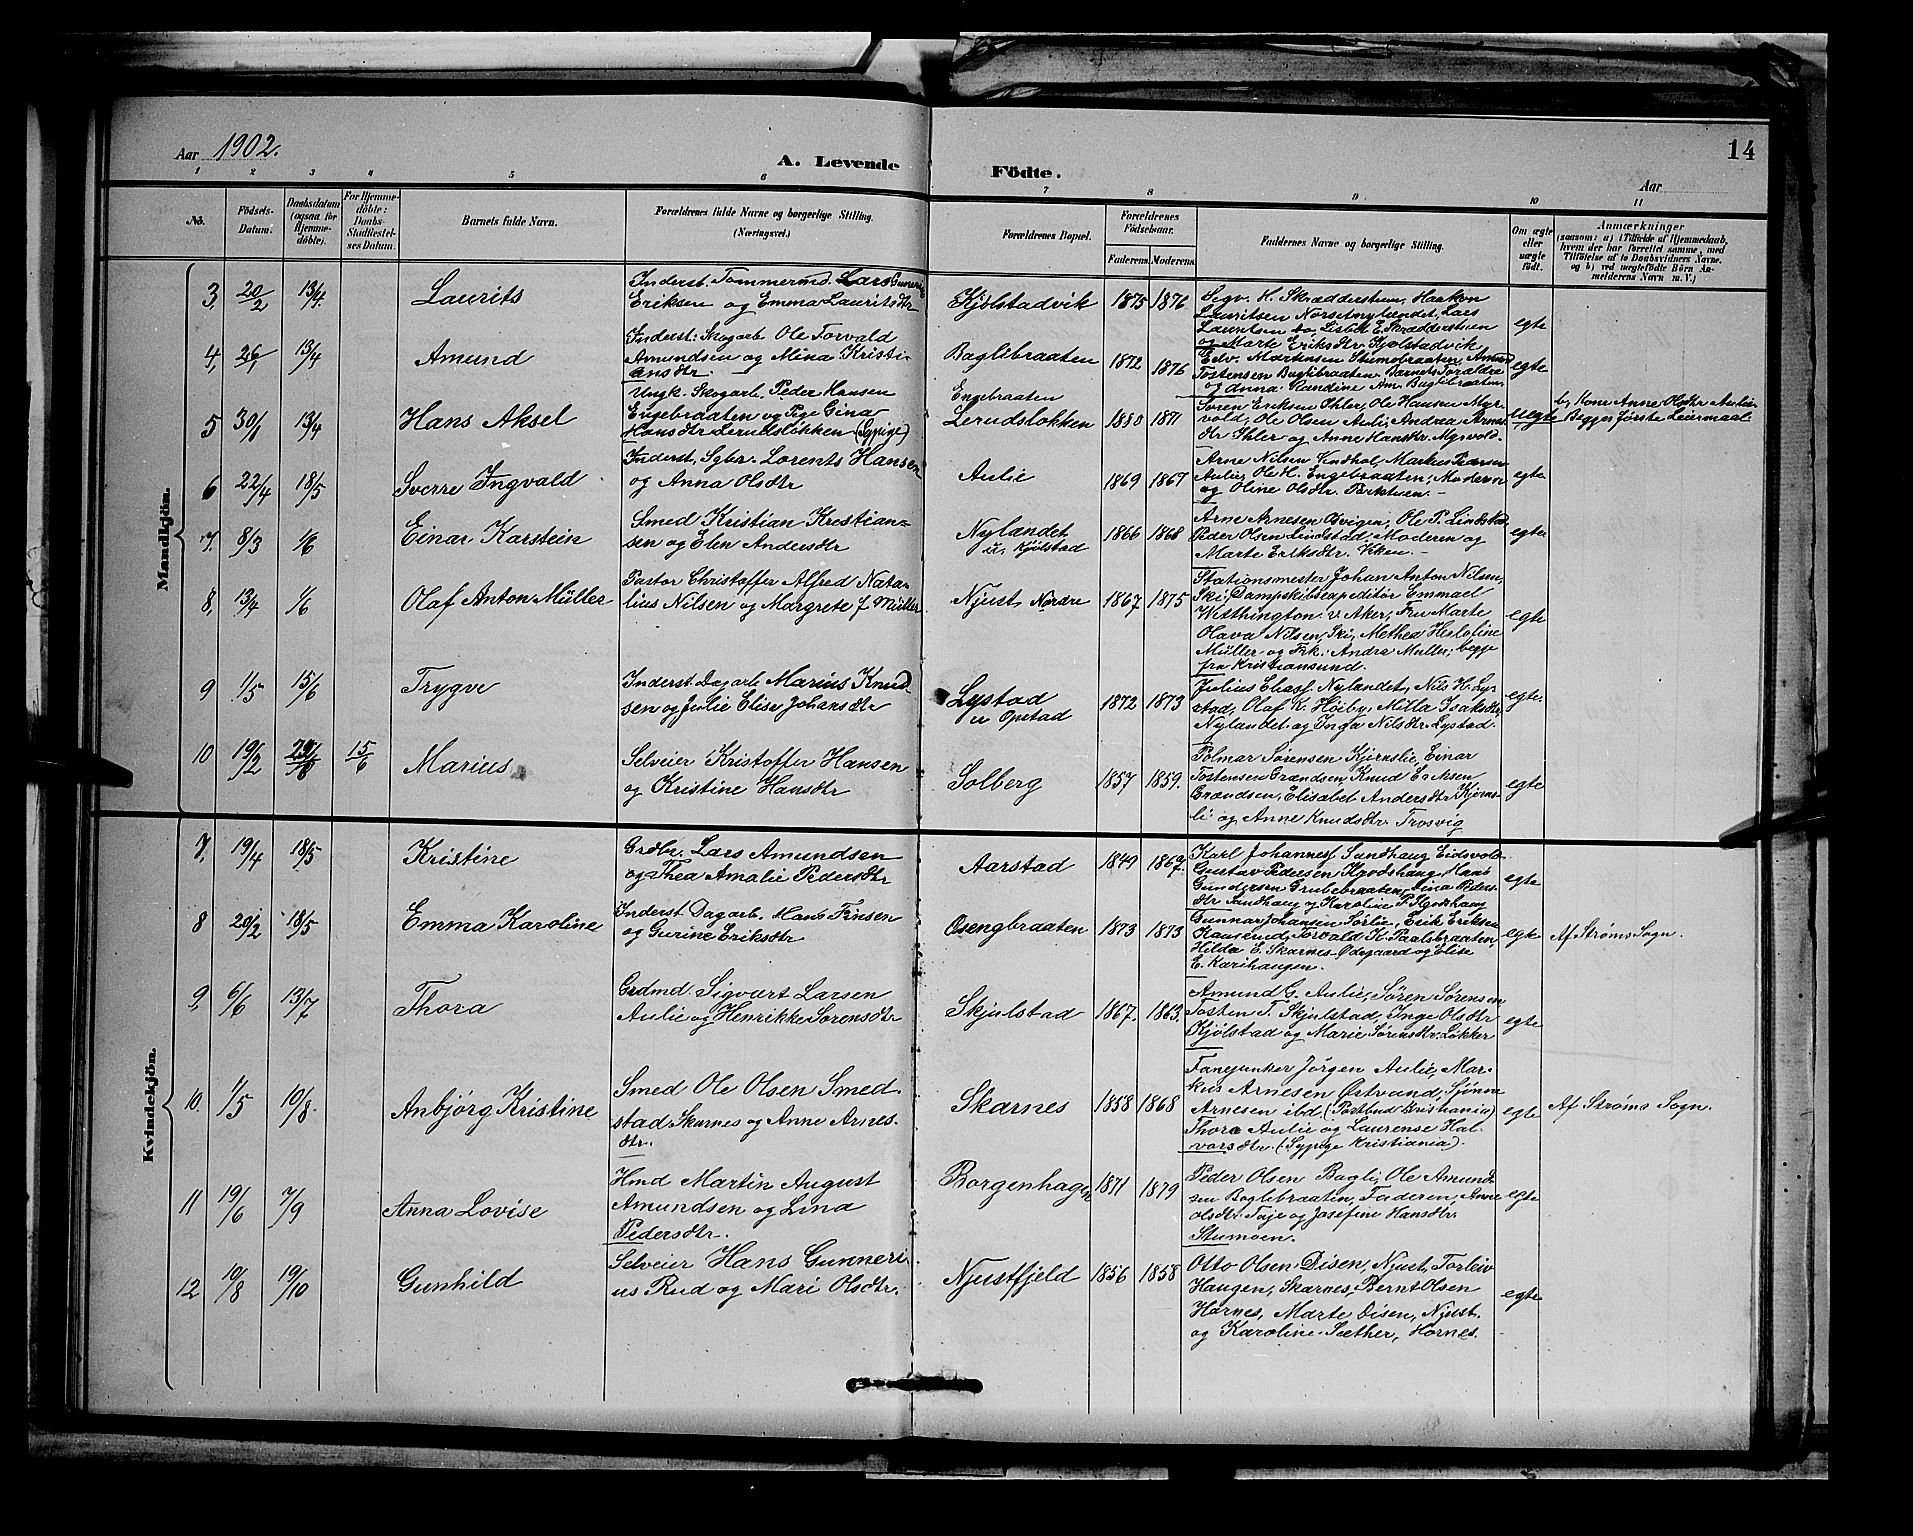 Aar 1902.
A. Levende
Födte.
Aar
14
1 2 3 4 5 6 7 8 9 10 11
No.
Födsels-Datum.
Daabsdatum (ogsaa for Hjemmedöbte).
For Hjemmedöbte: Daabs-Stadfæstelses Datum.
Barnets fulde Navn.
Forældrenes fulde Navne og borgerlige Stilling.
(Næringsvei.)
Forældrenes Bopæl.
Forældrenes Födselsaar.
Faderens. Moderens.
Faddernes Navne og borgerlige Stilling.
Om ægte eller uægte födt.
Anmærkninger
(saasom: a) i Tilfælde af Hjemmedaab, hvem der har forrettet samme, med Tilföielse af to Daabsvidners Navne, og b) ved uægtefödte Börn Anmelderens Navn m. V.)
Mandkjön.
3, 20/2 13/4 Laurits
Inderst. Tømmermd. Lars Gunerius
Eriksen og Emma Lauritsdtr
Kjölstadvik 1875 1876
H. Skrædderstuen, Haakon
Lauritsen Norsetnylændet, Lars
Lauritsen do, Lisbet E. Skrædderstuen
og Marte Eriksdtr. Kjølstadvik
egte
4, 26/1 13/4 Amund
Inderst: Skogarb. Ole Torvald
Amundsen og Mina Kristi-
ansdtr.
Baglibraaten 1872 1876
Edv. Martinsen Stumobraaten, Amund
Tostensen Baglibraaten, Barnets Forældre
og Anna Randine Am. Baglibraaten.
egte
5 30/1 13/4 Hans Aksel
Ungk. Skogarb. Peder Hansen
Engebraaten og Pige Gina
Hansdtr Lerudslökken (Sypige)
Engebraaten
Lerudslokken 1880 1871
Søren Eriksen Ihler, Ole Hansen Myr-
vold, Ole Olsen Auli, Andrea Arnes-
dtr Ihler og Anne Hansdtr. Myrvold.
uegte
b, Kone Anne Olsdtr Aulie.
Begges første Leiermaal.
6 22/4 18/5 Sverre Ingvald
Inderst, Sgbr. Lorents Hansen
og Anna Olsdtr
Aulie 1869 1867
Arne Nilsen Vindhol, Markus Pedersen
Aulie, Ole H. Engebraaten, Moderen
og Oline Olsdtr.
egte
7. 8/3 1/6 Einar Karstein
Smed Kristian Kristian-
sen og Elen Andersdtr
Nylændet
u. Kjölstad 1866 1868
Arne Arnesen Øvigen, Ole P. Lindstad
Peder Olsen Lindstad, Moderen og
Marte Eriksdtr. Viken.
egte
8, 13/4 1/6 Olaf Anton Müller
Pastor Christoffer Alfred Nata-
lius Nilsen og Margrete f. Müller
Njust, Nordre 1867 1875
Stationsmester Johan Anton Nilsen,
Ski, Dampskibsexpeditör Emmael
Witthington v. Aker, Fru Marte
Olava Nilsen, Ski, Methea Heslofine
Müller og Frk. Andra Müller, begge
fra Kristiansund.
egte
9 1/5 15/6 Trygve
Inderst. Dagarb. Marius Knud-
sen og Julie Elise Johansdtr
Lystad
u Opstad 1872 1873
Julius Eliass. Nylandet, Nils H. Ly-
stad, Olaf K. Høiby, Milla Isaksdtr
Nylandet og Inga Nilsdtr. Lystad.
egte.
10 19/2 15/6 Marius
Selveier Kristoffer Hansen
og Kristine Hansdtr
Solberg 1857 1859.
Polmar Sørensen Kjernslie, Einar
Tostensen Grændsen, Knud Eriksen
Grændsen, Elisabet Andersdtr Kjerns-
li og Anne Knudsdtr. Trosvig
egte
Kvindekjön.
7, 19/4 18/5 Kristine
Grdbr. Lars Amundsen
og Thea Amalie Pedersdtr
Aarstad 1849 1867.
Karl Johanness. Sundhaug Eidsvold.
Gustav Pedersen Hodshaug, Hans
Gundersen Grubebraaten, Lina Peders-
dtr Sundhaug og Karoline P. Hodshaug
egte
8 20/2 18/5 Emma Karoline
Inderst Dagarb. Hans Finsen
og Gurine Eriksdtr
Osengbraaten 1873 1873
Gunnar Johansen Sørlie, Erik Eriksen
Kauserud, Torvald K. Paalsbraaten,
Hilda E. Skarnes Ødegaard og Elise
E. Karihaugen.
egte
Af Strøms Sogn.
9, 6/6 13/7 Thora
Grdmd. Sigvart Larsen
Aulie og Henrikke Sorensdtr
Skjulstad 1867. 1863.
Amund G. Aulie, Søren Sørensen
Tosten T. Skjulstad, Inge Olsdtr
Kjølstad og Marie Sørensdtr. Løkker
egte
10. 1/5 10/8. Anbjörg Kristine
Smed Ole Olsen Smed-
stad Skarnes og Anne Arnes-
dtr.
Skarnes 1858 1868
Fanejunker Jörgen Aulie, Mar-
kus Arnesen Østvand, Sjønne
Arnesen ibd. (Postbud Kristiania)
Thora Aulie og Laurense Hal-
vorsdtr. (Sypige Kristiania).
egte
Af Strøms Sogn.
11 19/6 7/9 Anna Lovise
Hmd Martin August
Amundsen og Lina
Pedersdtr.
Borgenhagen 1871 1879
Peder Olsen Bagli, Ole Amund-
sen Baglibraaten, Faderen, Anne
Olsdtr. Taje og Josefine Hansdtr.
Stumoen.
egte
12 10/8 19/10 Gunhild
Selveier Hans Gunneri-
us Rud og Mari Olsdtr.
Njustfjeld 1856 1858
Otto Olsen Disen, Njust, Torleiv
Haugen, Skarnes, Bernt Olsen
Hornes, Marte Disen, Njust.
og Karoline Sæther, Hornes.
egte